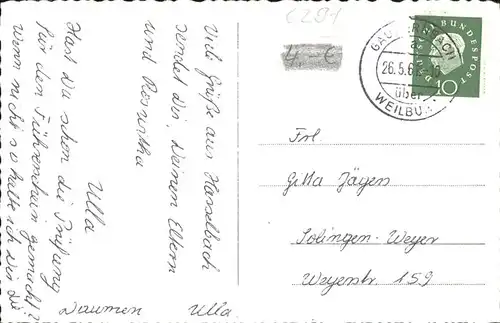 C201
4,- €
Viele Grüße aus Hasselbach
sendet dir, deinen Eltern
und Roswitha
Ulla
Hast du schon die Prüfung
für den Führerschein gemacht?
Wenn nicht so halte ich dir die
Daumen Ulla.
DEUTSCHE BUNDESPOST
10
26.5.6
über
WEILBU
Frl.
Gitta Jägen
Solingen-Weyer
Weyerstr 159